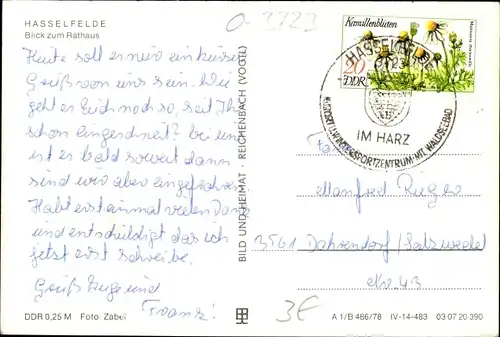 o-3723
HASSELFELDE
Blick zum Rathaus
Heute soll es nur ein kurzer
Gruß von uns sein. Wie
geht es Euch noch so, seit Ihr
schon eingeschneit? bei uns
ist es bald soweit dann
sind wir aber eingefroren
Habt erst einmal vielen Dank
und entschuldigt das ich
jetzt erst schreibe.
Gruß Inge und
Frank!
DDR 0,25 M Foto: Zabel
BILD UND HEIMAT · REICHENBACH (VOGTL)
Kamillenblüten
20
DDR
HASSELFELDE
3723
IM HARZ
WINTERSPORTZENTRUM MIT WALDSEEBAD
Fam.
Manfred Rieger
3561 Dahrendorf/Salzwedel
No. 43
3€
A 1/B 486/78 IV-14-483 03 07 20 390